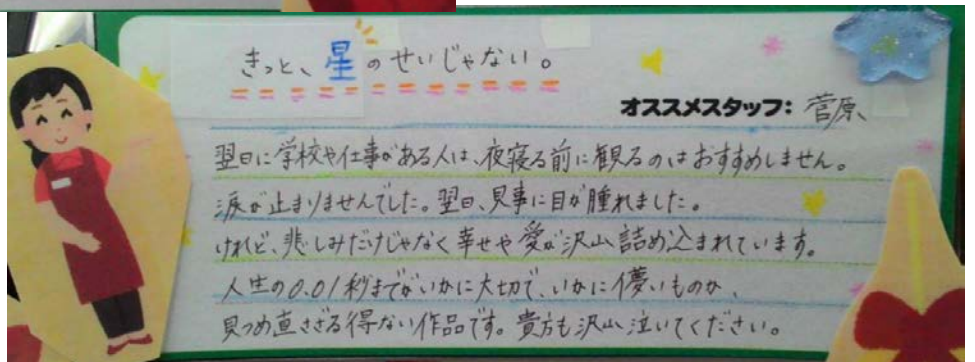 きっと、星のせいじゃない。
オススメスタッフ: 菅原
翌日に学校や仕事がある人は、夜寝る前に観るのはおすすめしません。
涙が止まりませんでした。翌日、見事に目が腫れました。
けれど、悲しみだけじゃなく幸せや愛が沢山詰め込まれています。
人生の0.01秒までがいかに大切で、いかに儚いものか、
見つめ直さざる得ない作品です。貴方も沢山泣いてください。